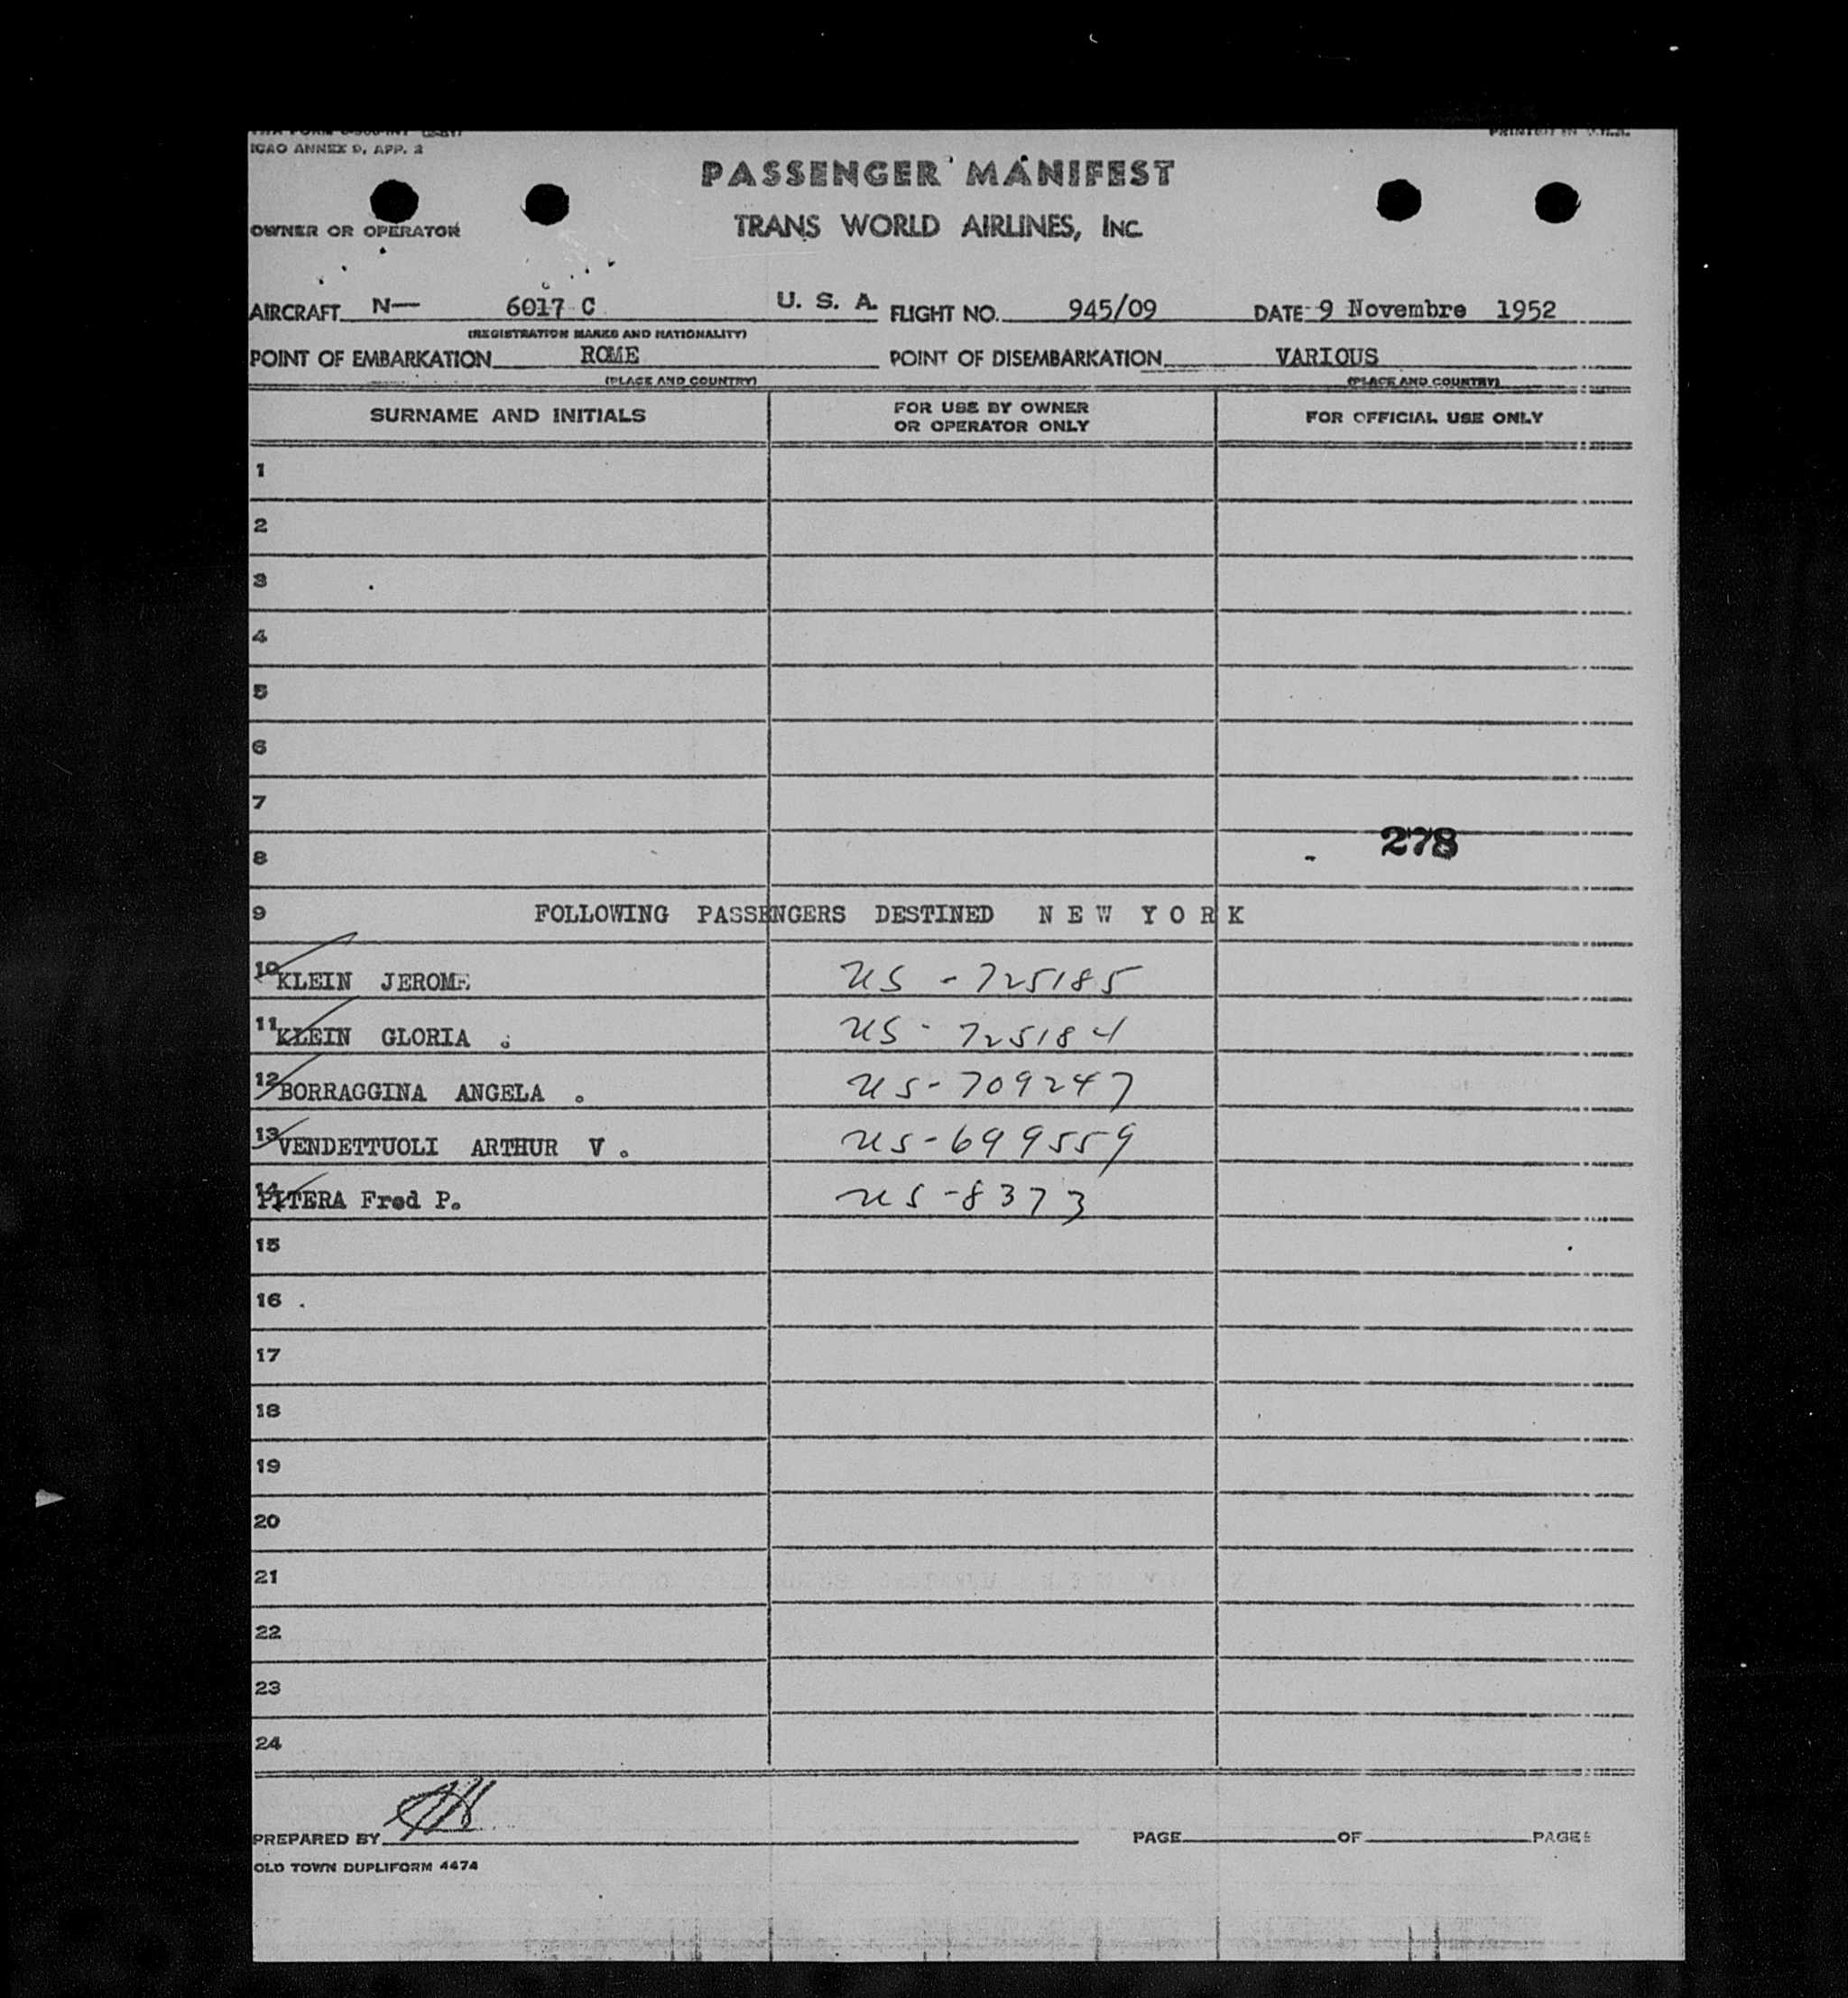 ICAO ANNEX 9, APP. 2
PRINTED IN U.S.A.
PASSENGER MANIFEST
OWNER OR OPERATOR
TRANS WORLD AIRLINES, INC.
AIRCRAFT N— 6017 C U. S. A. FLIGHT NO. 945/09 DATE 9 Novembre 1952
(REGISTRATION MARKS AND NATIONALITY)
POINT OF EMBARKATION ROME POINT OF DISEMBARKATION VARIOUS
(PLACE AND COUNTRY) (PLACE AND COUNTRY)
SURNAME AND INITIALS FOR USE BY OWNER OR OPERATOR ONLY FOR OFFICIAL USE ONLY
1
2
3
4
5
6
7
278
8
9 FOLLOWING PASSENGERS DESTINED N E W Y O R K
10 KLEIN JEROME US - 725185
11 KLEIN GLORIA . US - 725184
12 BORRAGGINA ANGELA . US-709247
13 VENDETTUOLI ARTHUR V . US-699559
14 PITERA Fred P. US-8373
15
16
17
18
19
20
21
22
23
24
PREPARED BY PAGE OF PAGES
OLD TOWN DUPLIFORM 4474